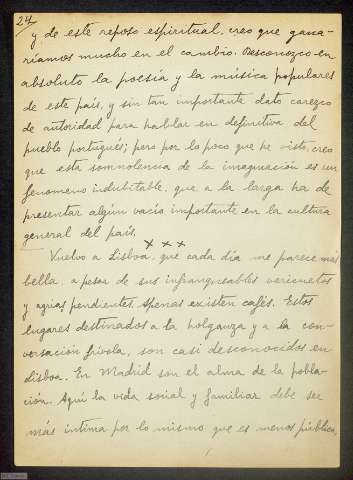 24
y de este reposo espiritual, creo que gana-
ríamos mucho en el cambio. Desconozco en
absoluto la poesía y la música populares
de este país, y sin tan importante dato carezco
de autoridad para hablar en definitiva del
pueblo portugués; pero por lo poco que he visto, creo
que esta somnolencia de la imaginación es un
fenomeno indubitable, que a la larga ha de
presentar algún vacío importante en la cultura
general del país.
x x x
Vuelvo a Lisboa, que cada día me parece más
bella, a pesar de sus infranqueables vericuetos
y agrias pendientes. Apenas existen cafés. Estos
lugares destinados a la holganza y a la con-
versación frívola, son casi desconocidos en
Lisboa. En Madrid son el alma de la pobla-
ción. Aquí la vida social y familiar debe ser
más íntima por lo mismo que es menos pública,